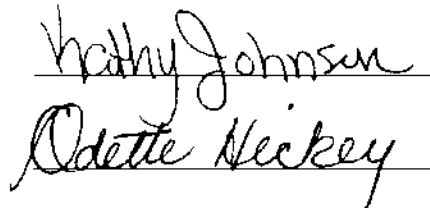 Kathy Johnson
Odette Hickey